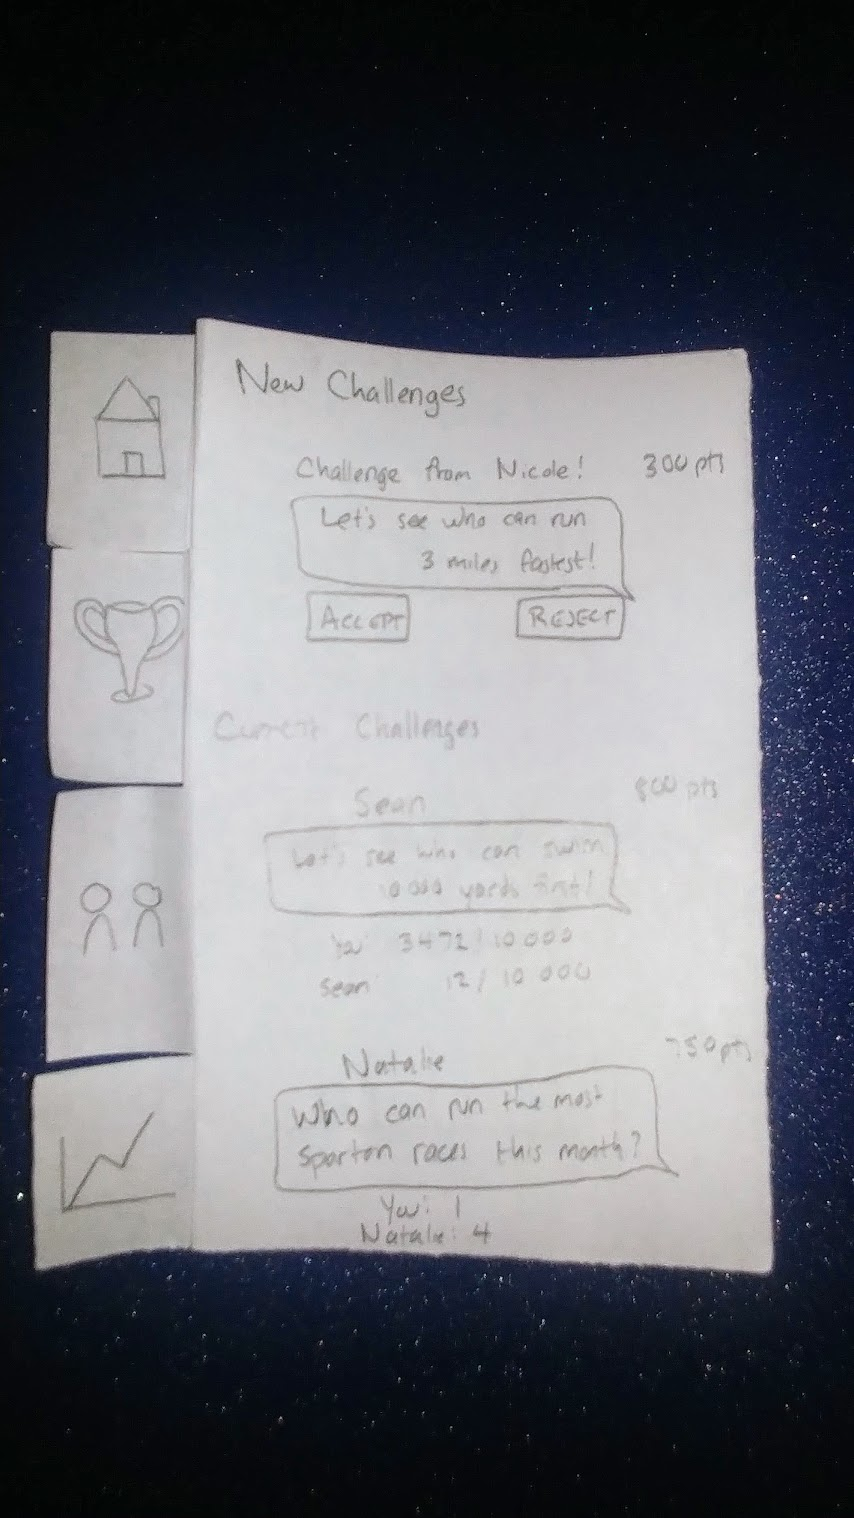 New Challenges
Challenge from Nicole! 300 pts
Let's see who can run
3 miles fastest!
ACCEPT REJECT
Current Challenges
Sean 800 pts
Let's see who can swim
10 000 yards first!
You 3472/10 000
Sean 12/10 000
Natalie 750 pts
Who can run the most
Spartan races this month?
You: 1
Natalie: 4